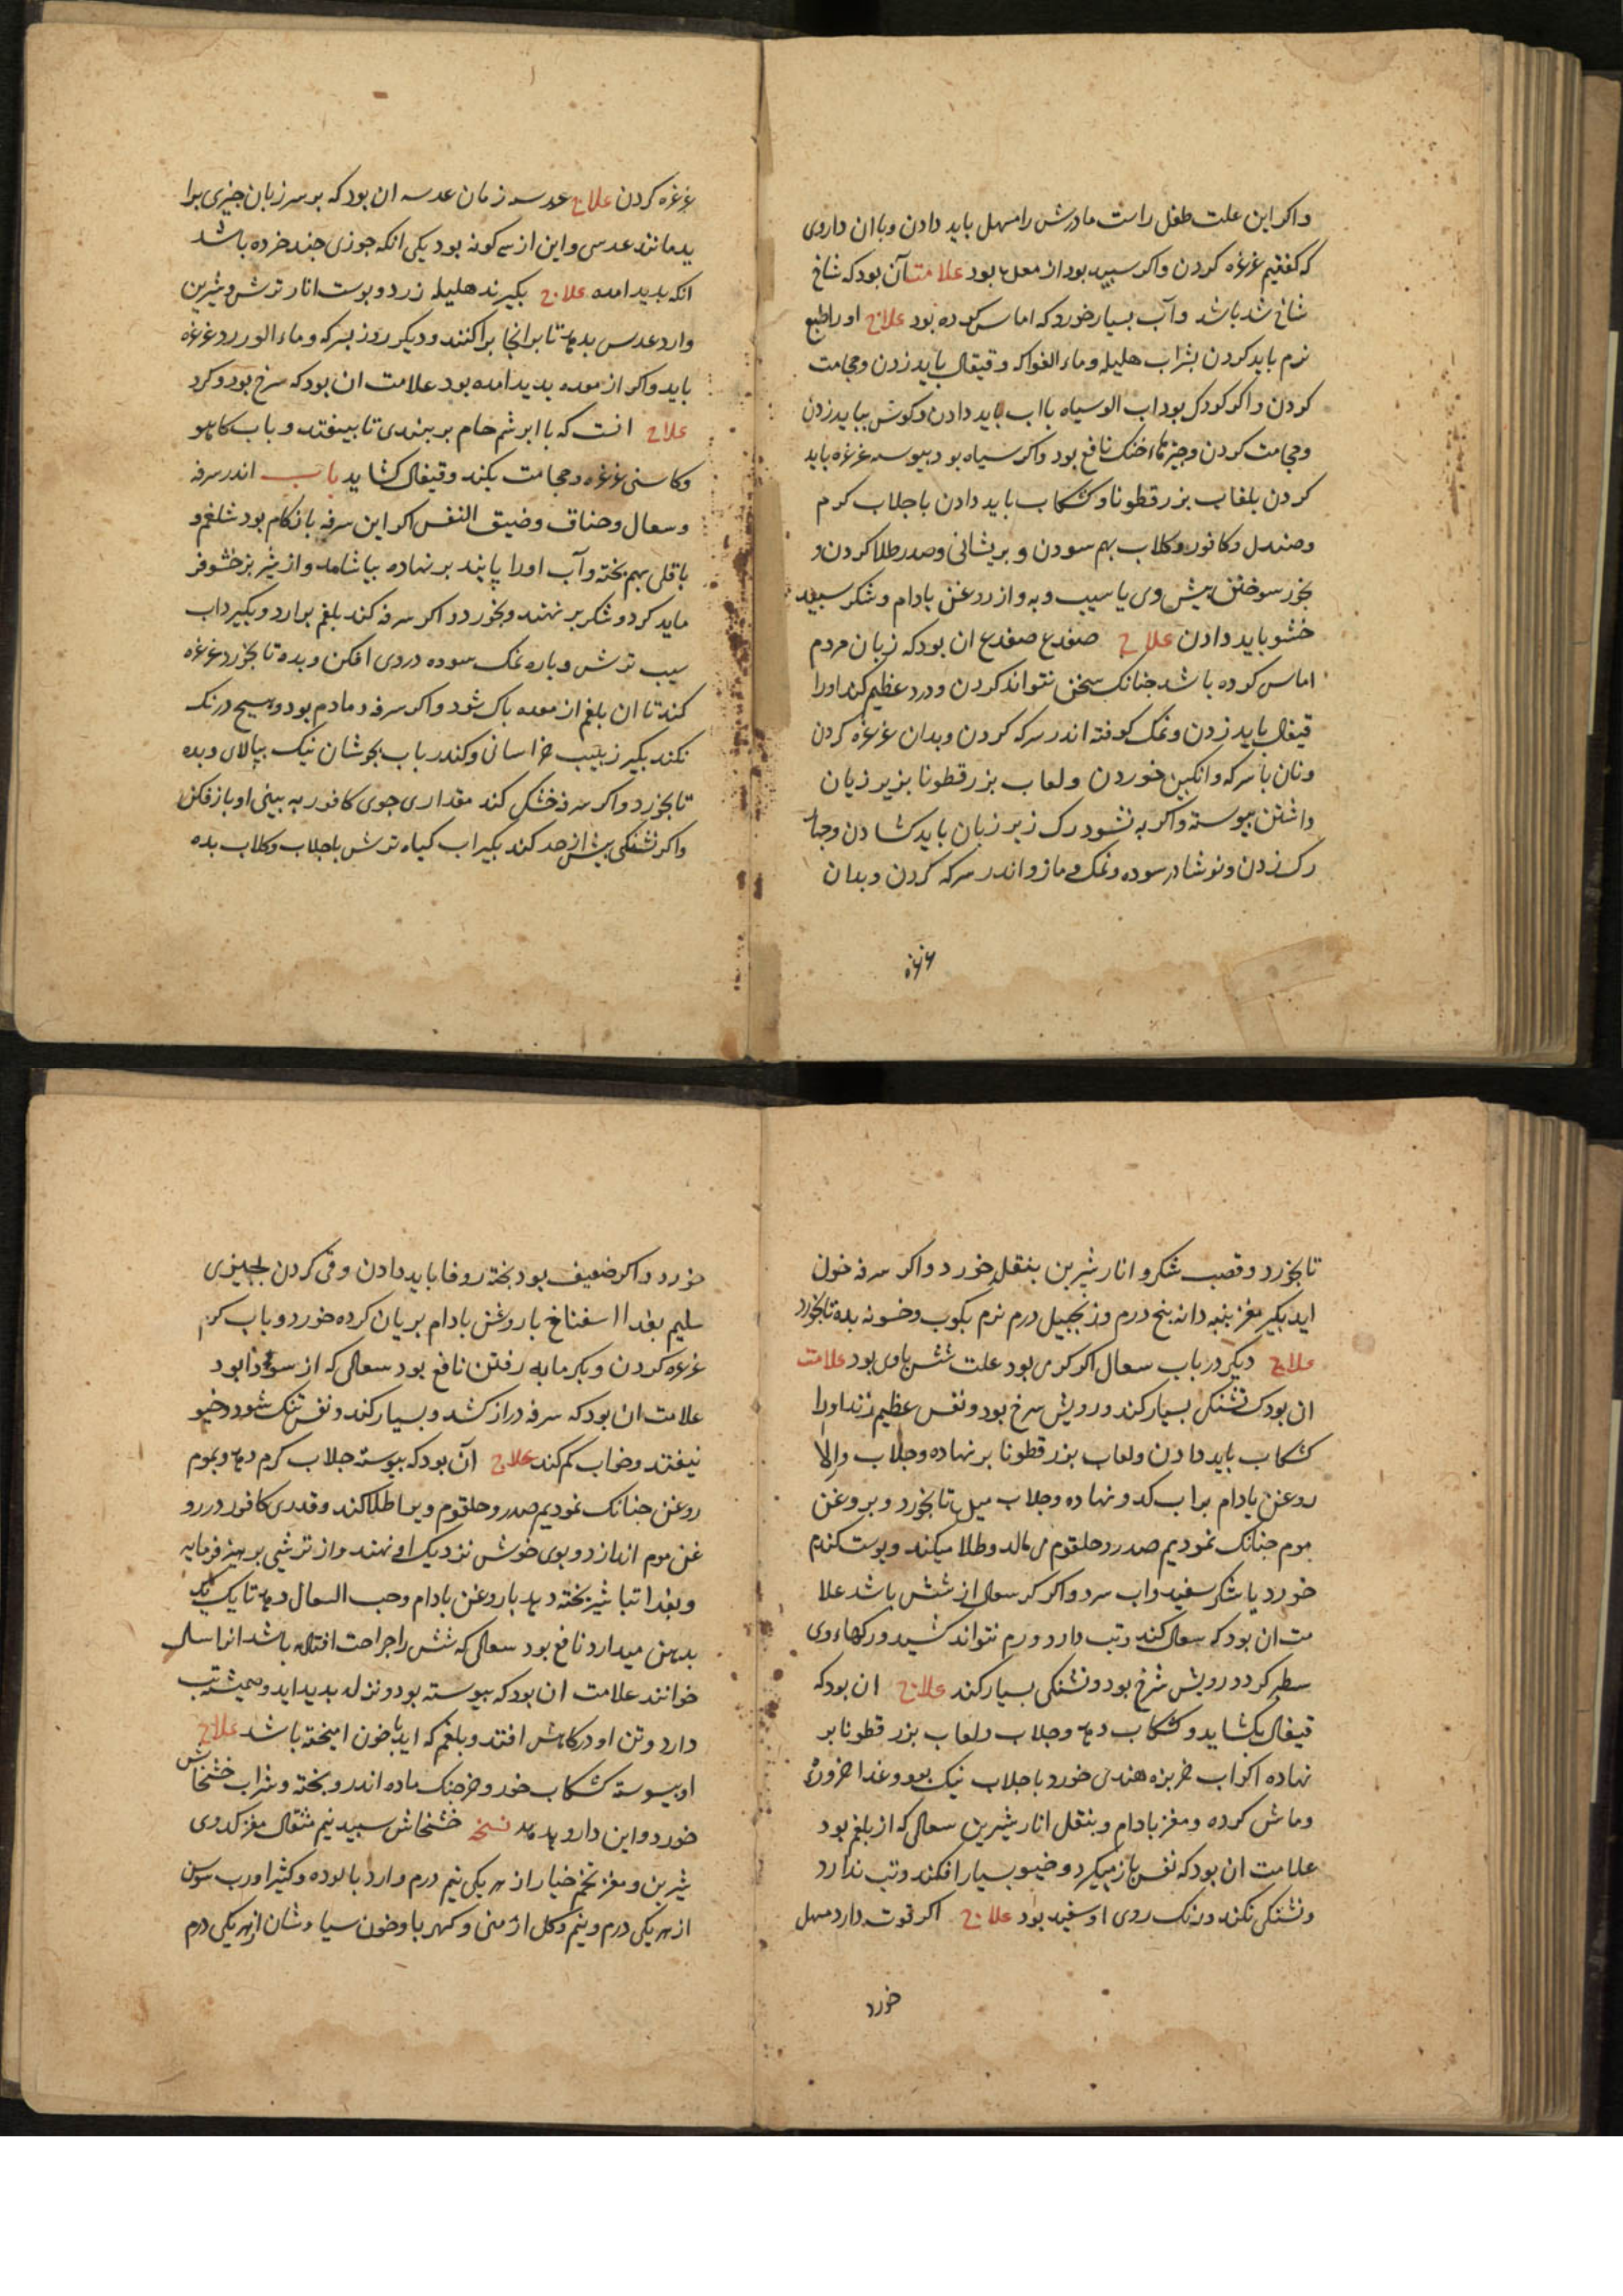 واکر این علت طفل راست مادرش را مسهل باید دادن وباان داروی
که کفتیم غرغره کردن واکر سبید بود از معده بود علامت آن بود که شاخ
شاخ شد باشد وآب بسیار خورد که اماس کرده بود علاج اورا طبع
نرم باید کردن بشراب هلیله وماء الفواکه وقیفال باید زدن وحجامت
کردن واکر کودک بود اب الو سیاه بااب باید دادن وکوش بباید زدن
وحجامت کردن وچیزهاا خنک نافع بود واکر سیاه بود بیوسه غرغره باید
کردن بلعاب بزر قطونا وکشکاب باید دادن باجلاب کرم
وصندل وکافور وکلاب بهم سودن وبربشانی وصدر طلا کردن و
بخور سوختن بیش وی یا سیب وبه واز روغن بادام وشکر سبید
خشو باید دادن علاج ضفدع ضفدع ان بود که زبان مردم
اماس کرده باشد جنانک سخن نتواند کردن ودرد عظیم کند اورا
قیفال باید زدن ونمک کوفته اندر سرکه کردن وبدان غرغره کردن
ونان باسرکه وانکبین خوردن ولعاب بزر قطونا بزیر زبان
داشتن بیوسته واکر به نشود رک زیر زبان باید کشادن وجهار
رک زدن ونوشادر سوده ونمک ومازو اندر سرکه کردن وبدان
غرغره
غرغره کردن علاج عدسه زمان عدسه ان بود که بر سر زبان جیزی برا
ید مانند عدسی واین از سه کونه بود یکی انکه جوزی جند خرده باشد
انکه بدید امده علاج بکیرند هلیله زرد وبوست انار ترش وشیرین
وارد عدس بدهد تا برانجا براکنند ودیکر روز بسرکه وماء الورد غرغره
باید واکر از معده بدید امده بود علامت ان بود که سرخ بود وکرد
علاج انست که باابرشم خام بربندی تا بیفتد وباب کاهو
وکاسنی غرغره وحجامت بکند وقیفال کشاید باب اندر سرفه
وسعال وخناق وضیق النفس اکر این سرفه بازکام بود شلغم و
باقلی بهم بخته وآب اورا پانید برنهاده بیاشامد واز شیر بز خشو فر
ماید کرد وشکر برنهند وبخورد واکر سرفه کند بلغم برارد وبکیرد اب
سیب ترش وباره نمک سوده دروی افکن وبده تا بخورد غرغره
کند تا ان بلغم از معده باک شود واکر سرفه دمادم بود وهیچ درنک
نکند بکیر زبیب خراسانی وکندر باب بجوشان نیک بپالای وبده
تا بخورد واکر سرفه خشک کند مقداری جوی کافور به بینی او باز فکن
واکر تشنکی بیش از حد کند بکیر اب کیاه ترش باجلاب وکلاب بده
تا بخورد وقصب شکر وانار شیرین بنقل خورد واکر سرفه خون
اید بکیر مغز بنبه دانه بنج درم وزنجبیل درم نرم بکوب وخسونه بده تا بخورد
علاج دیکر در باب سعال اکر کرمی بود علت شش باوی بود علامت
ان بود ک تشنکی بسیار کند ورویش سرخ بود ونفس عظیم زند اورا
کشکاب باید دادن ولعاب بزر قطونا برنهاده وجلاب والا
روغن بادام براب کدو نهاده وجلاب میل تا بخورد وبروغن
موم جنانک نمودیم صدر وحلقوم می مالد وطلا میکند وبوست کندم
خورد باشکر سفید واب سرد واکر کر سعال از شش باشد علا
مت ان بود که سعال کند وتب دارد ودم نتواند کشید ورکهاء وی
سطبر کردد رویش سرخ بود وتشنکی بسیار کند علاج ان بود که
قیفال بکشاید وکشکاب دهد وجلاب ولعاب بزر قطونا بر
نهاده اکر اب خربزه هندی خورد باجلاب نیک بود وغدا مزوره
وماش کرده ومغز بادام وبنقل انار شیرین سعالی که از بلغم بود
علامت ان بود که نفس باز میکرد وخیو بسیار افکند وتب ندارد
وتشنکی نکند ورنک روی او سفید بود علاج اکر قوت دارد مسهل
خورد
خورد واکر ضعیف بود بخته زوفا باید دادن وقی کردن بجیزی
سلیم بغدا اسفناخ باروغن بادام بریان کرده خورد وباب کرم
غرغره کردن وبکرمابه رفتن نافع بود سعالی که از سودا بود
علامت ان بود که سرفه دراز کشد وبسیار کند ونفس تنک شود وخیو
نیفتد وخواب کم کند علاج آن بود که بیوسته جلاب کرم دهد وبموم
روغن جنانک نمودیم صدر وحلقوم ویرا طلا کند وقدری کافور در رو
غن موم اندازد وبوی خوش نزدیک او نهند واز ترشی برهیز فرمایه
وبغدا تباشیر بخته دهد باروغن بادام وحب السعال دهد تا یک یک
بدهن میدارد نافع بود سعالی که شش را جراحت افتاده باشد انرا سل
خوانند علامت ان بود که بیوسته بود ونزله بدید اید وهمیشه تب
دارد وتن او درکاهش افتد وبلغم که اید باخون امیخته باشد علاج
او بیوسته کشکاب خورد وخرجنک ماده اندرو بخته وشراب خشخاش
خورد واین دارو بدهد نسخه خشخاش سبید نیم مثقال مغز کدوی
شیرین ومغز تخم خیار از هر یکی نیم درم وارد بالوده وکثیرا ورب سوس
از هر یکی درم ونیم وکل ارمنی وکهربا وخون سیاوشان از هر یکی درم